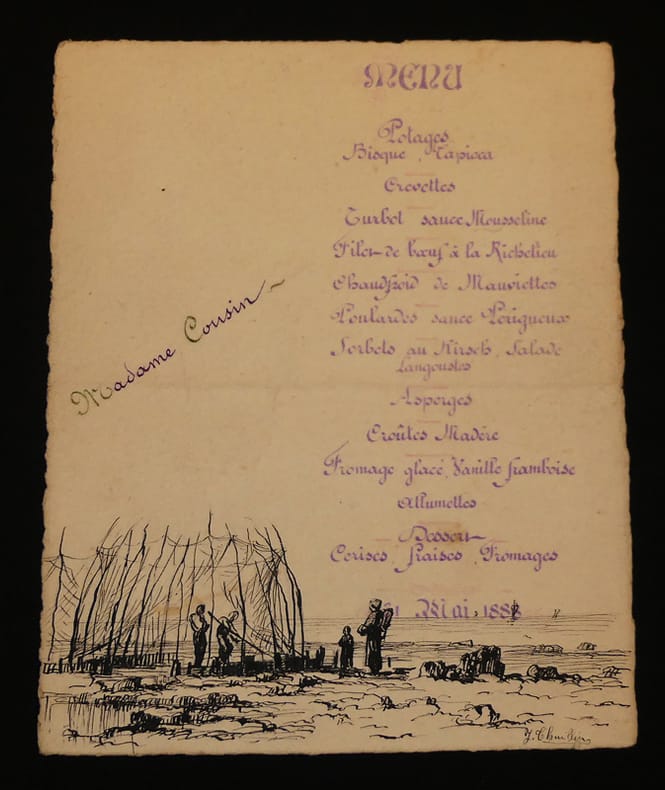 MENU
Potages
Bisque, Tapioca
Crevettes
Turbot sauce Mousseline
Filet de bœuf à la Richelieu
Chaudfroid de Mauviettes
Poulardes sauce Périgueux
Sorbets au Kirsch, Salade
Langoustes
Asperges
Croûtes Madère
Fromage glacé, Vanille framboise
Allumettes
Dessert
Cerises, fraises, Fromages
Mai
Madame Cousin